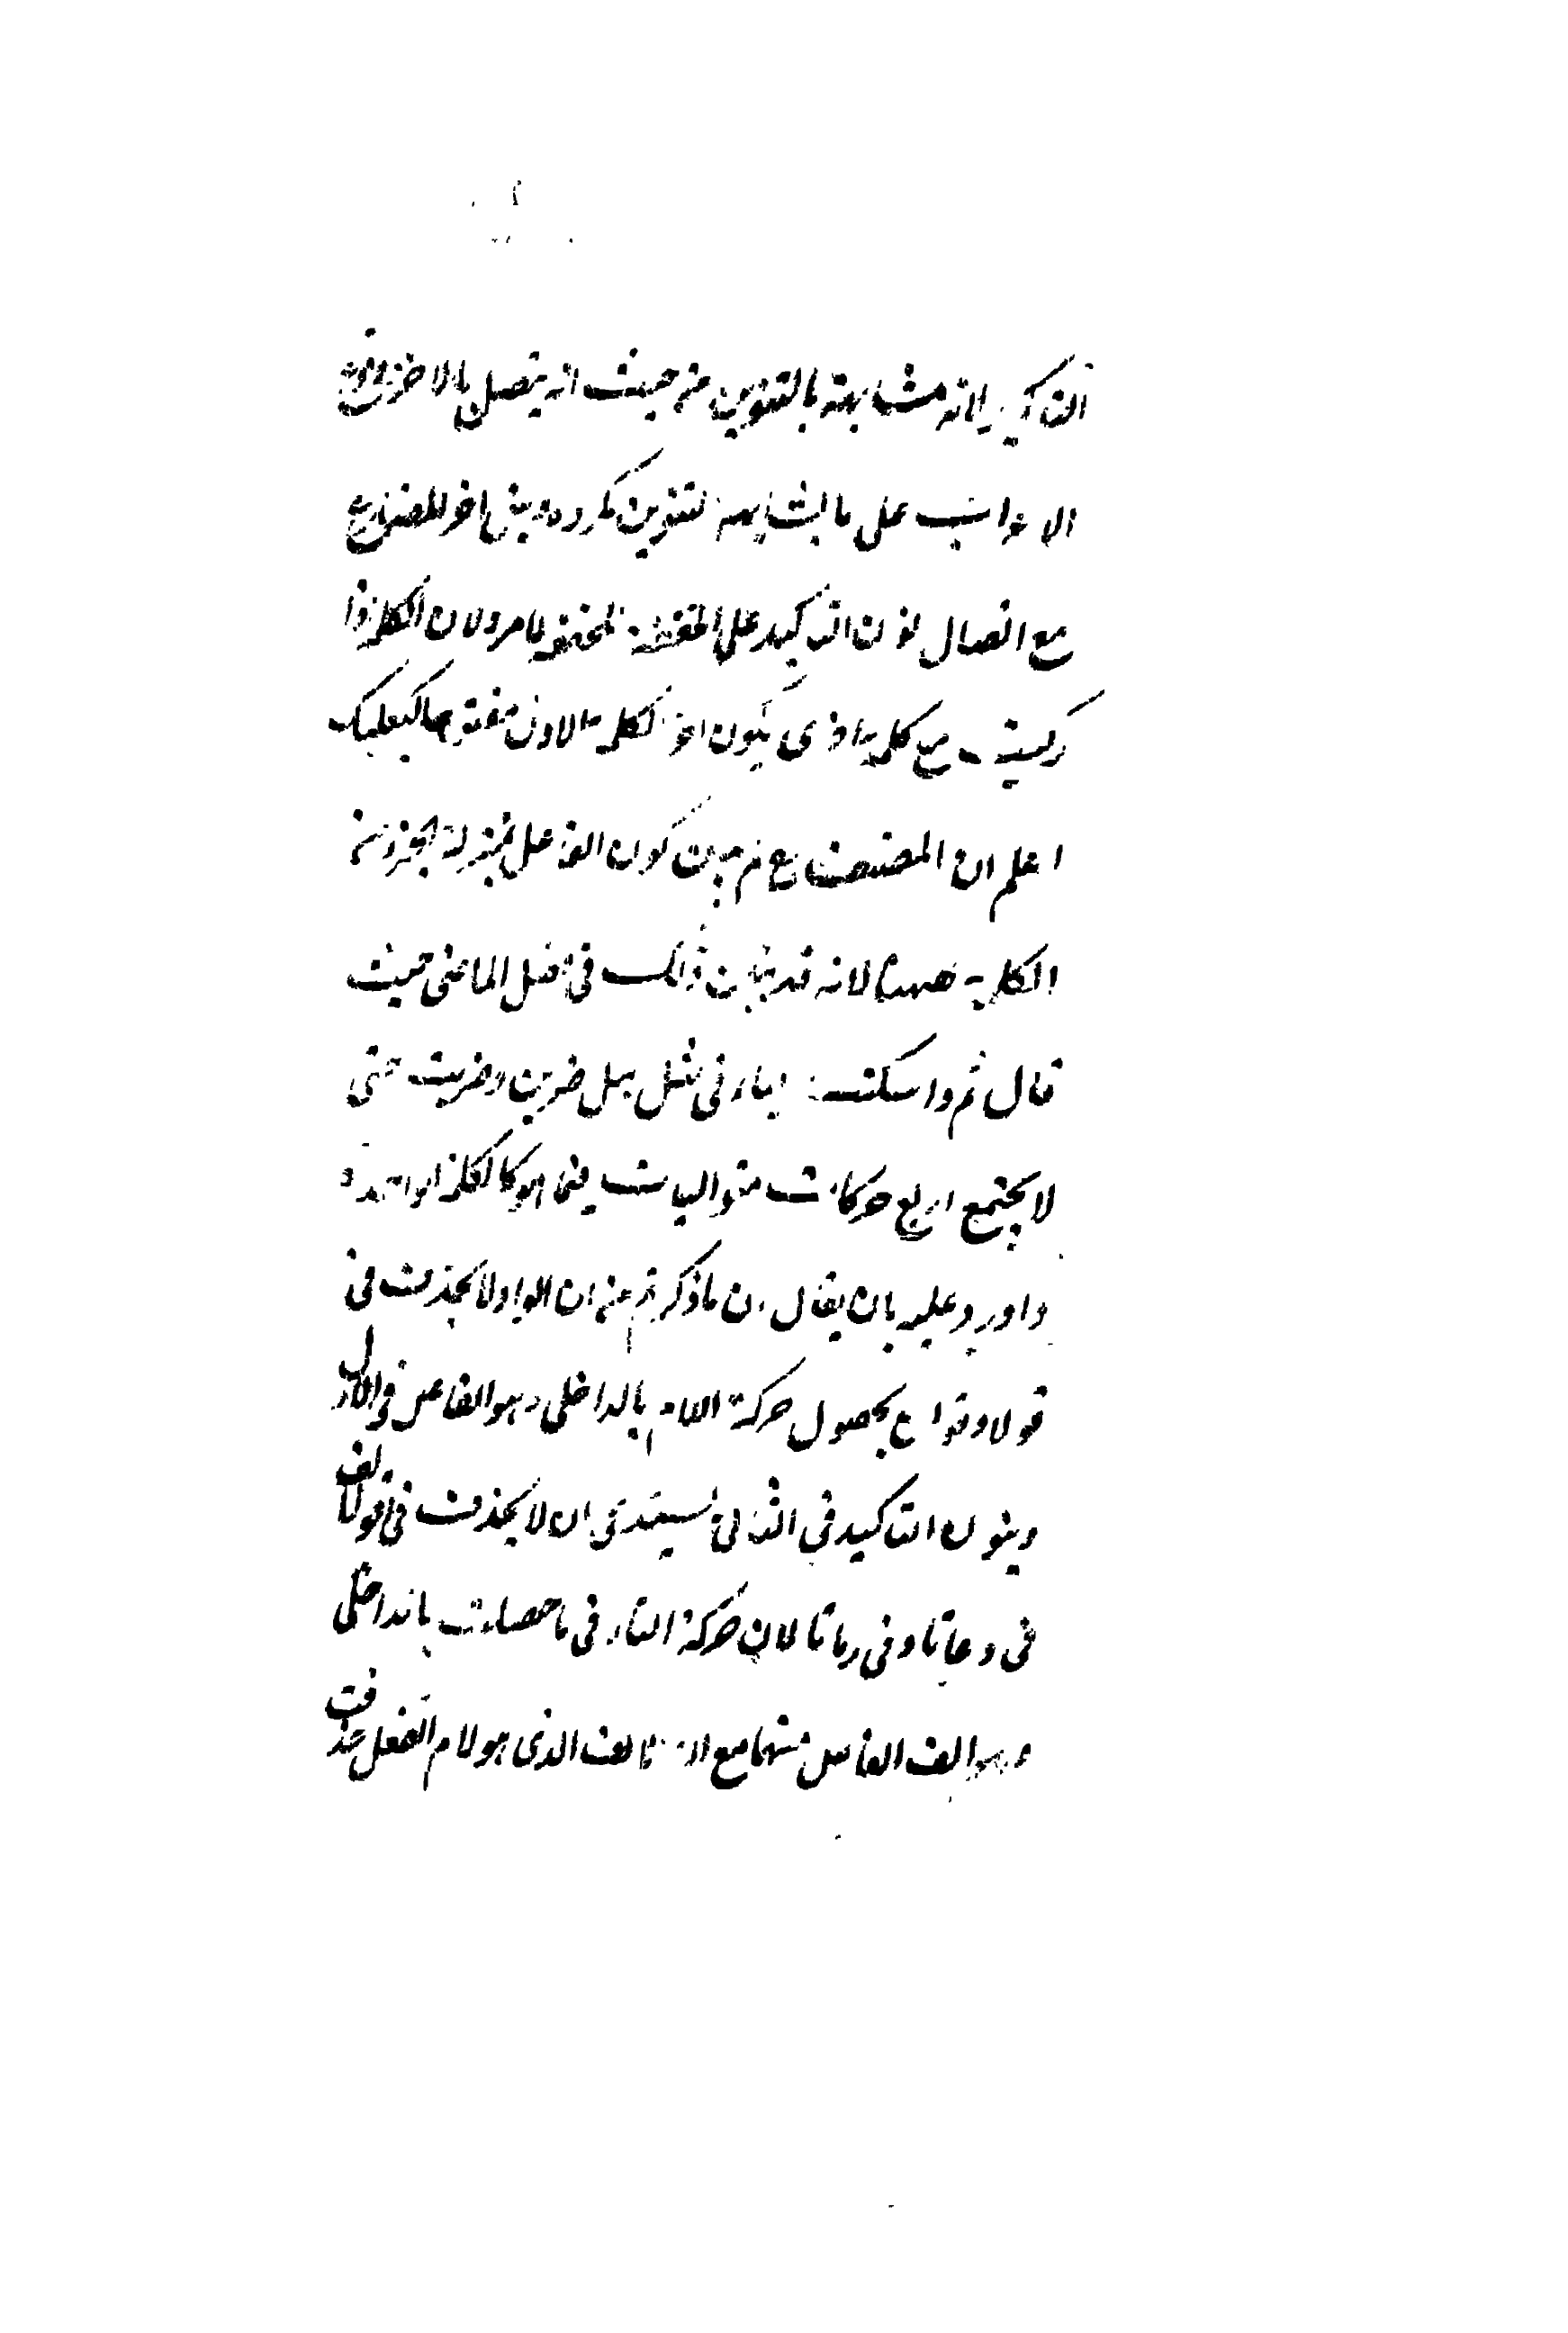 التاكيد لانه مشابهة بالتنوين من حيث انه يتصل بالاخر
الاعراب على ما يشابه التنوين مكروه وبنى اخر المضارع
مع اتصال نون التاكيد على الفتحة للخفة لما مر ولان الكلمة اذا
ركبت مع كلمة اخرى يكون اخر الكلمة الاولى مفتوحا كبعلبك
اعلم ان المصنف مع لم يبين كون الفاعل بمنزلة الجزء من
الكلمة ههنا لانه قد بين ذلك في فصل الماضي حيث
قال ثم واسكنت الباء في مثل ضربن وضربت حتى
لا يجتمع اربع حركات متواليات فيما هو كالكلمة الواحدة
واورد عليه بان يقال ان ما ذكرتم من ان الواو لا يحذف في
قولا وقولن بحصول حركة اللام بالداخلى وهو الفاعل في الاول
وبنون التاكيد في الثاني يستدعى ان لا يحذف الف في قولنا
في دعاتا وفي رماتا لان حركة التاء في ما حصلت بالداخلى
وهو الف الفاعل منهما مع ان الالف الذى هو لام الفعل حذفت